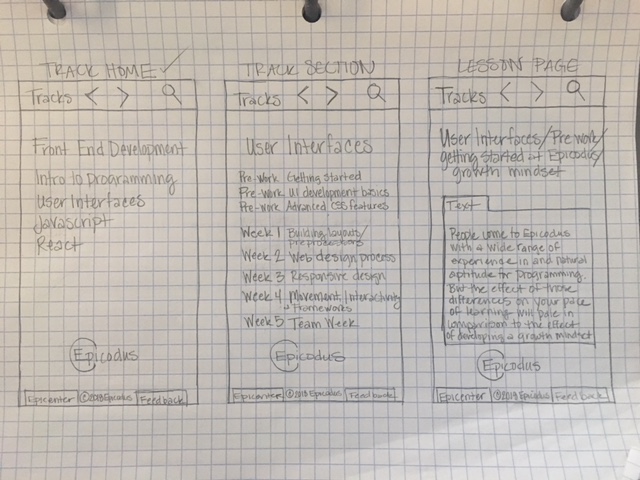 TRACK HOME
Tracks < >
Front End Development
Intro to programming
User Interfaces
Javascript
React
Epicodus
Epicenter
©2019 Epicodus
Feedback
TRACK SECTION
Tracks < >
User Interfaces
Pre-Work Getting started
Pre-Work UI development basics
Pre-Work Advanced CSS features
Week 1 Building layouts/
preprocessors
Week 2 Web design process
Week 3 Responsive design
Week 4 Movement, Interactivity
+ Frameworks
Week 5 Team Week
Epicodus
Epicenter
©2019 Epicodus
Feedback
LESSON PAGE
Tracks < >
User Interfaces/Pre work/
getting started at Epicodus/
growth mindset
Text
People come to Epicodus
with a wide range of
experience in and natural
aptitude for programming.
But the effect of those
differences on your pace
of learning will pale in
comparison to the effect
of developing a growth mindset
Epicodus
Epicenter
©2019 Epicodus
Feedback